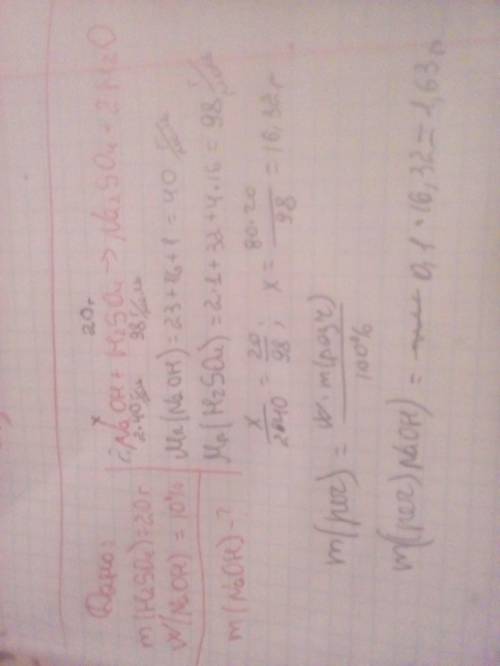 Дано:
m(H2SO4)=20г
W(NaOH) = 10%
m(NaOH)-?
x 20г
2NaOH + H2SO4 → Na2SO4 + 2H2O
2·40г/моль 98г/моль
Mr(NaOH) = 23+16+1 = 40 г/моль
Mr(H2SO4) = 2·1+32+4·16 = 98 г/моль
x/2·40 = 20/98; x = 80·20/98 = 16,32г
m(реч) = W·m(розч)/100%
m(реч)NaOH) = 0,1·16,32=1,63г